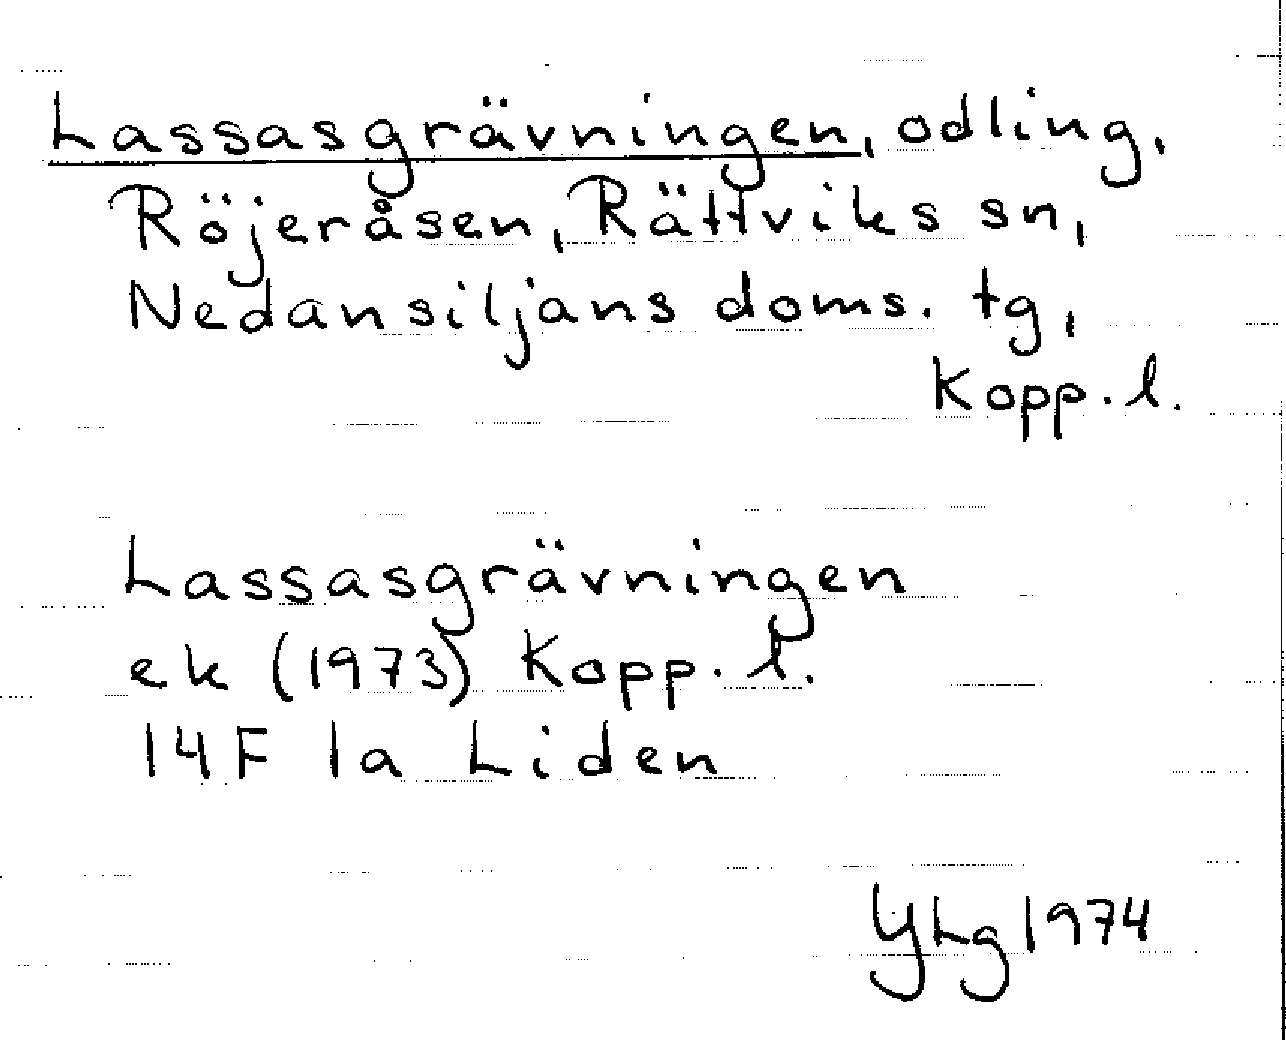 Lassasgrävningen, odling,
Röjeråsen, Rättviks sn,
Nedansiljans doms. tg,
Kopp. l.
Lassasgrävningen
ek (1973) Kopp. l.
14F 1a Liden
YLg 1974